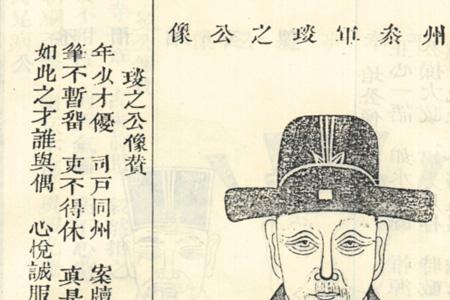 州叅軍琰之公像
琰之公像贊
年少才優 司戸同州 案牘
筆不暫畱 吏不得休 真是
如此之才誰與偶 心悅誠服